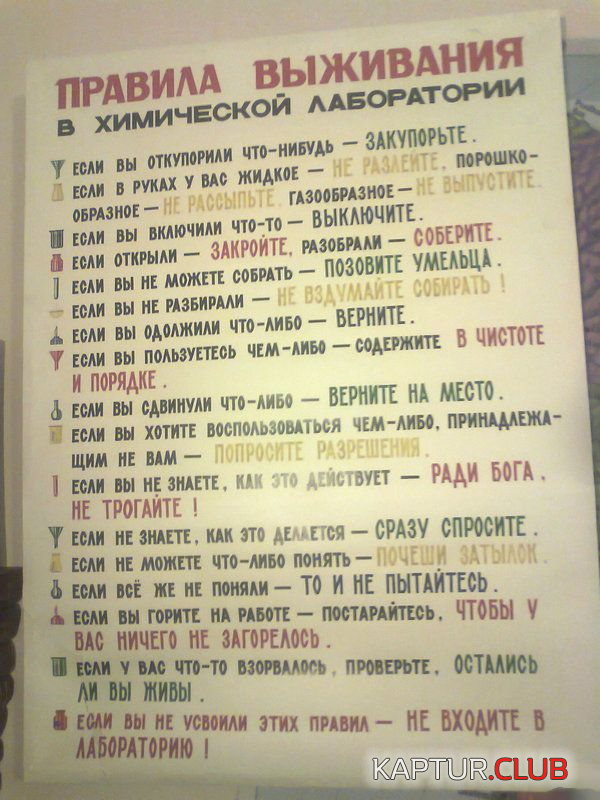 ПРАВИЛА ВЫЖИВАНИЯ
В ХИМИЧЕСКОЙ ЛАБОРАТОРИИ
ЕСЛИ ВЫ ОТКУПОРИЛИ ЧТО-НИБУДЬ — ЗАКУПОРЬТЕ.
ЕСЛИ В РУКАХ У ВАС ЖИДКОЕ — НЕ РАЗЛЕЙТЕ, ПОРОШКО-
ОБРАЗНОЕ — НЕ РАССЫПЬТЕ, ГАЗООБРАЗНОЕ — НЕ ВЫПУСТИТЕ.
ЕСЛИ ВЫ ВКЛЮЧИЛИ ЧТО-ТО — ВЫКЛЮЧИТЕ.
ЕСЛИ ОТКРЫЛИ — ЗАКРОЙТЕ, РАЗОБРАЛИ — СОБЕРИТЕ.
ЕСЛИ ВЫ НЕ МОЖЕТЕ СОБРАТЬ — ПОЗОВИТЕ УМЕЛЬЦА.
ЕСЛИ ВЫ НЕ РАЗБИРАЛИ — НЕ ВЗДУМАЙТЕ СОБИРАТЬ!
ЕСЛИ ВЫ ОДОЛЖИЛИ ЧТО-ЛИБО — ВЕРНИТЕ.
ЕСЛИ ВЫ ПОЛЬЗУЕТЕСЬ ЧЕМ-ЛИБО — СОДЕРЖИТЕ В ЧИСТОТЕ
И ПОРЯДКЕ.
ЕСЛИ ВЫ СДВИНУЛИ ЧТО-ЛИБО — ВЕРНИТЕ НА МЕСТО.
ЕСЛИ ВЫ ХОТИТЕ ВОСПОЛЬЗОВАТЬСЯ ЧЕМ-ЛИБО, ПРИНАДЛЕЖА-
ЩИМ НЕ ВАМ — ПОПРОСИТЕ РАЗРЕШЕНИЯ.
ЕСЛИ ВЫ НЕ ЗНАЕТЕ, КАК ЭТО ДЕЙСТВУЕТ — РАДИ БОГА,
НЕ ТРОГАЙТЕ!
ЕСЛИ НЕ ЗНАЕТЕ, КАК ЭТО ДЕЛАЕТСЯ — СРАЗУ СПРОСИТЕ.
ЕСЛИ НЕ МОЖЕТЕ ЧТО-ЛИБО ПОНЯТЬ — ПОЧЕШИ ЗАТЫЛОК.
ЕСЛИ ВСЁ ЖЕ НЕ ПОНЯЛИ — ТО И НЕ ПЫТАЙТЕСЬ.
ЕСЛИ ВЫ ГОРИТЕ НА РАБОТЕ — ПОСТАРАЙТЕСЬ, ЧТОБЫ У
ВАС НИЧЕГО НЕ ЗАГОРЕЛОСЬ.
ЕСЛИ У ВАС ЧТО-ТО ВЗОРВАЛОСЬ, ПРОВЕРЬТЕ, ОСТАЛИСЬ
ЛИ ВЫ ЖИВЫ.
ЕСЛИ ВЫ НЕ УСВОИЛИ ЭТИХ ПРАВИЛ — НЕ ВХОДИТЕ В
ЛАБОРАТОРИЮ!
KAPTUR.CLUB